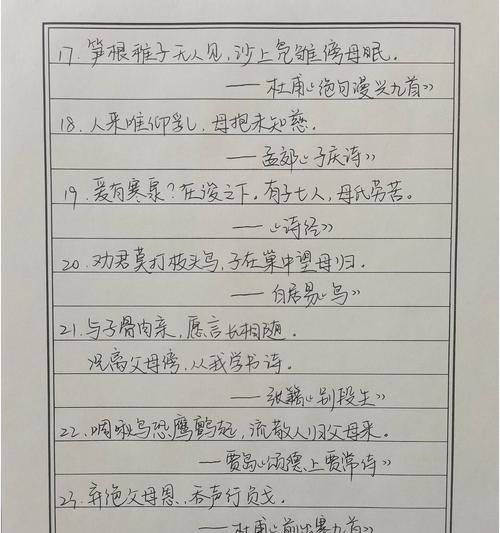 17. 笋根稚子无人见，沙上凫雏傍母眠。
——杜甫《绝句漫兴九首》
18. 人来唯仰乳，母抱未知慈。
——孟郊《子庆诗》
19. 爰有寒泉？在浚之下。有子七人，母氏劳苦。
——《诗经》
20. 劝君莫打枝头鸟，子在巢中望母归。
——白居易《鸟》
21. 与子骨肉亲，愿言长相随。
况离父母傍，从我学书诗。
——张籍《别段生》
22. 啁啾鸟恐鹰鹯起，流散人归父母来。
——贾岛《颂德上贾常侍》
23. 弃绝父母恩，吞声行负戈。
——杜甫《前出塞九首》